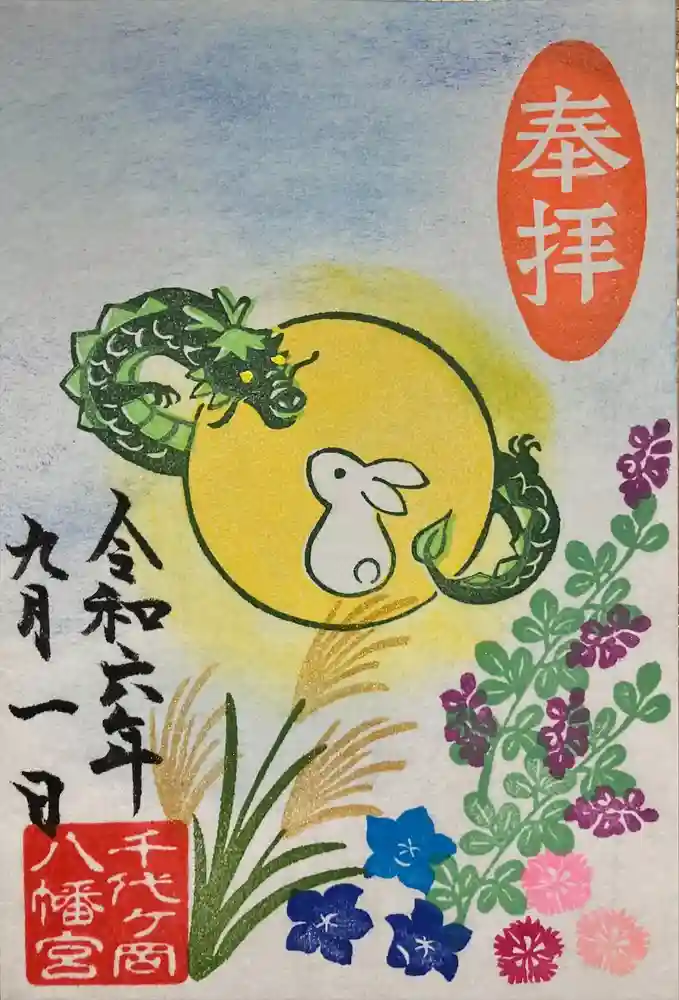 奉拝
令和六年
九月一日
千代ケ岡
八幡宮